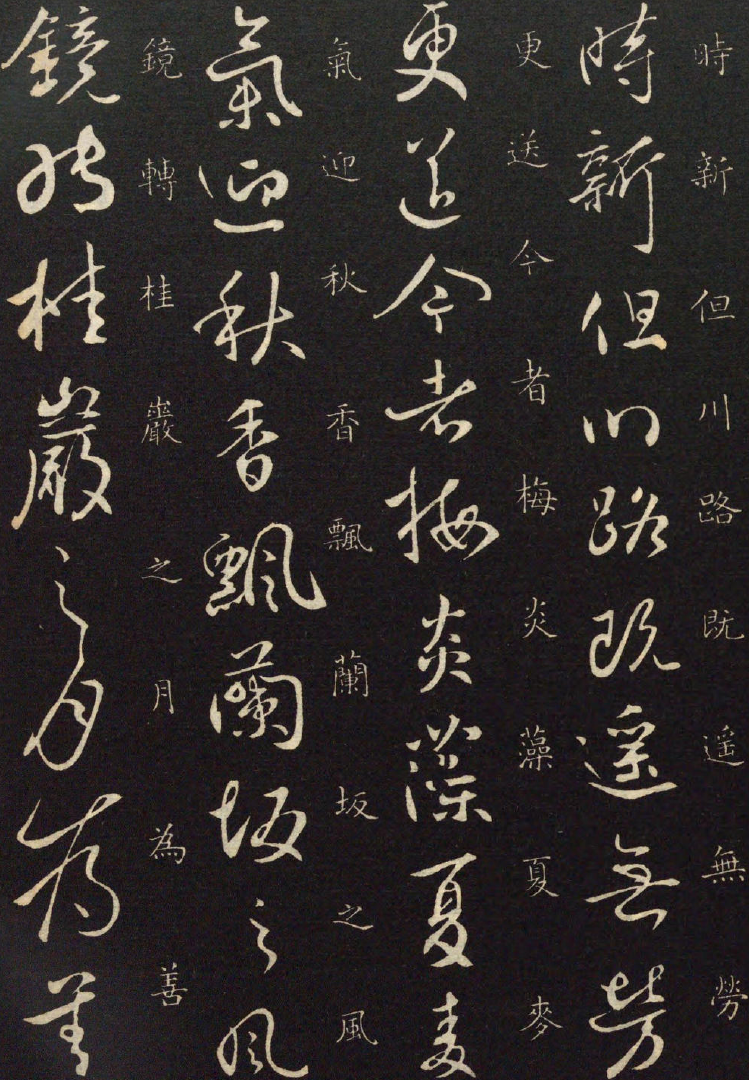 時新但川路既遥無勞
時新但川路既遥無勞
更送今者梅炎藻夏麥
更送今者梅炎藻夏麥
氣迎秋香飄蘭坂之風
氣迎秋香飄蘭坂之風
鏡轉桂巖之月為善
鏡轉桂巖之月為善